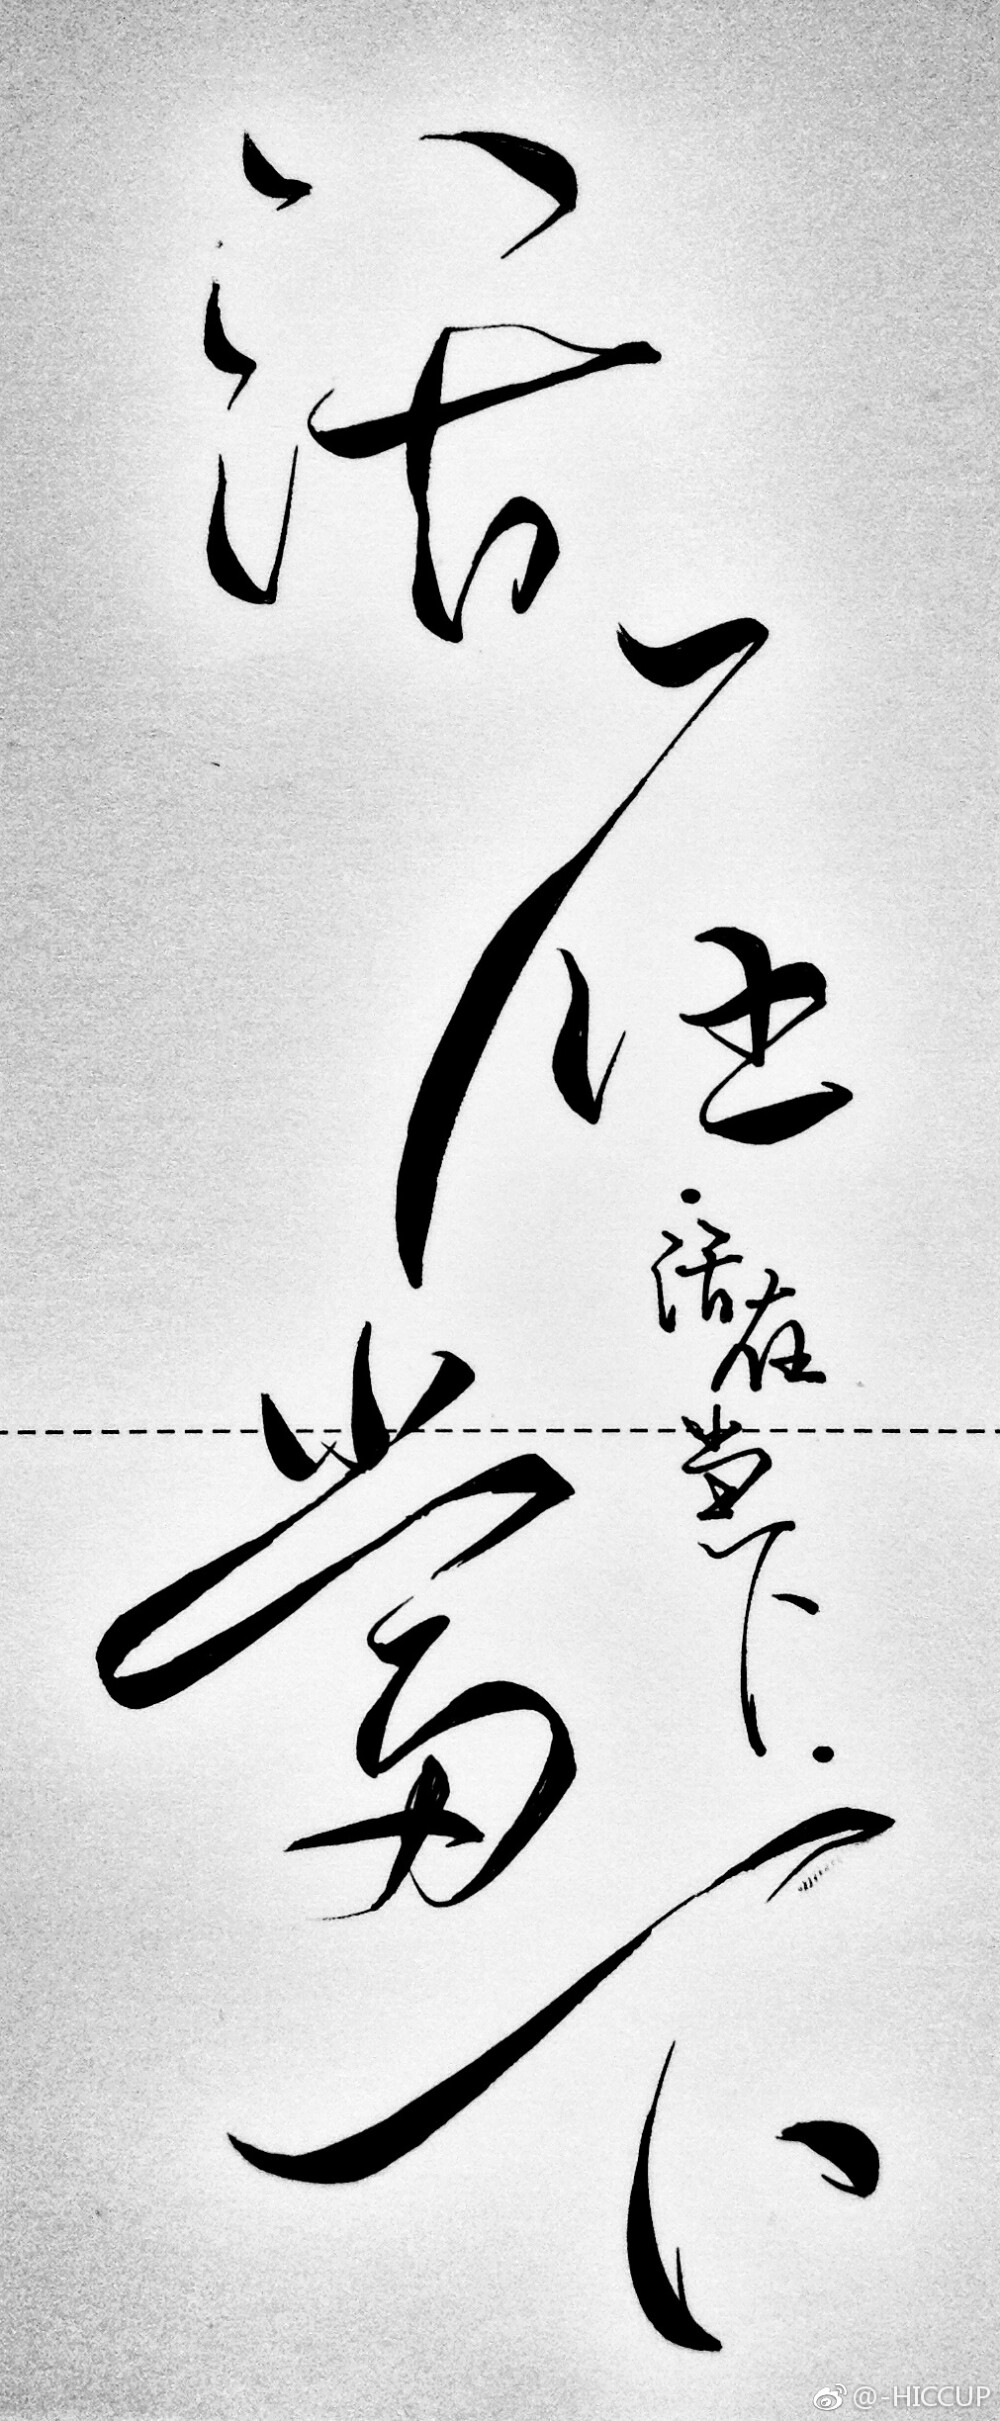 活在當下
·活在当下·
@-HICCUP